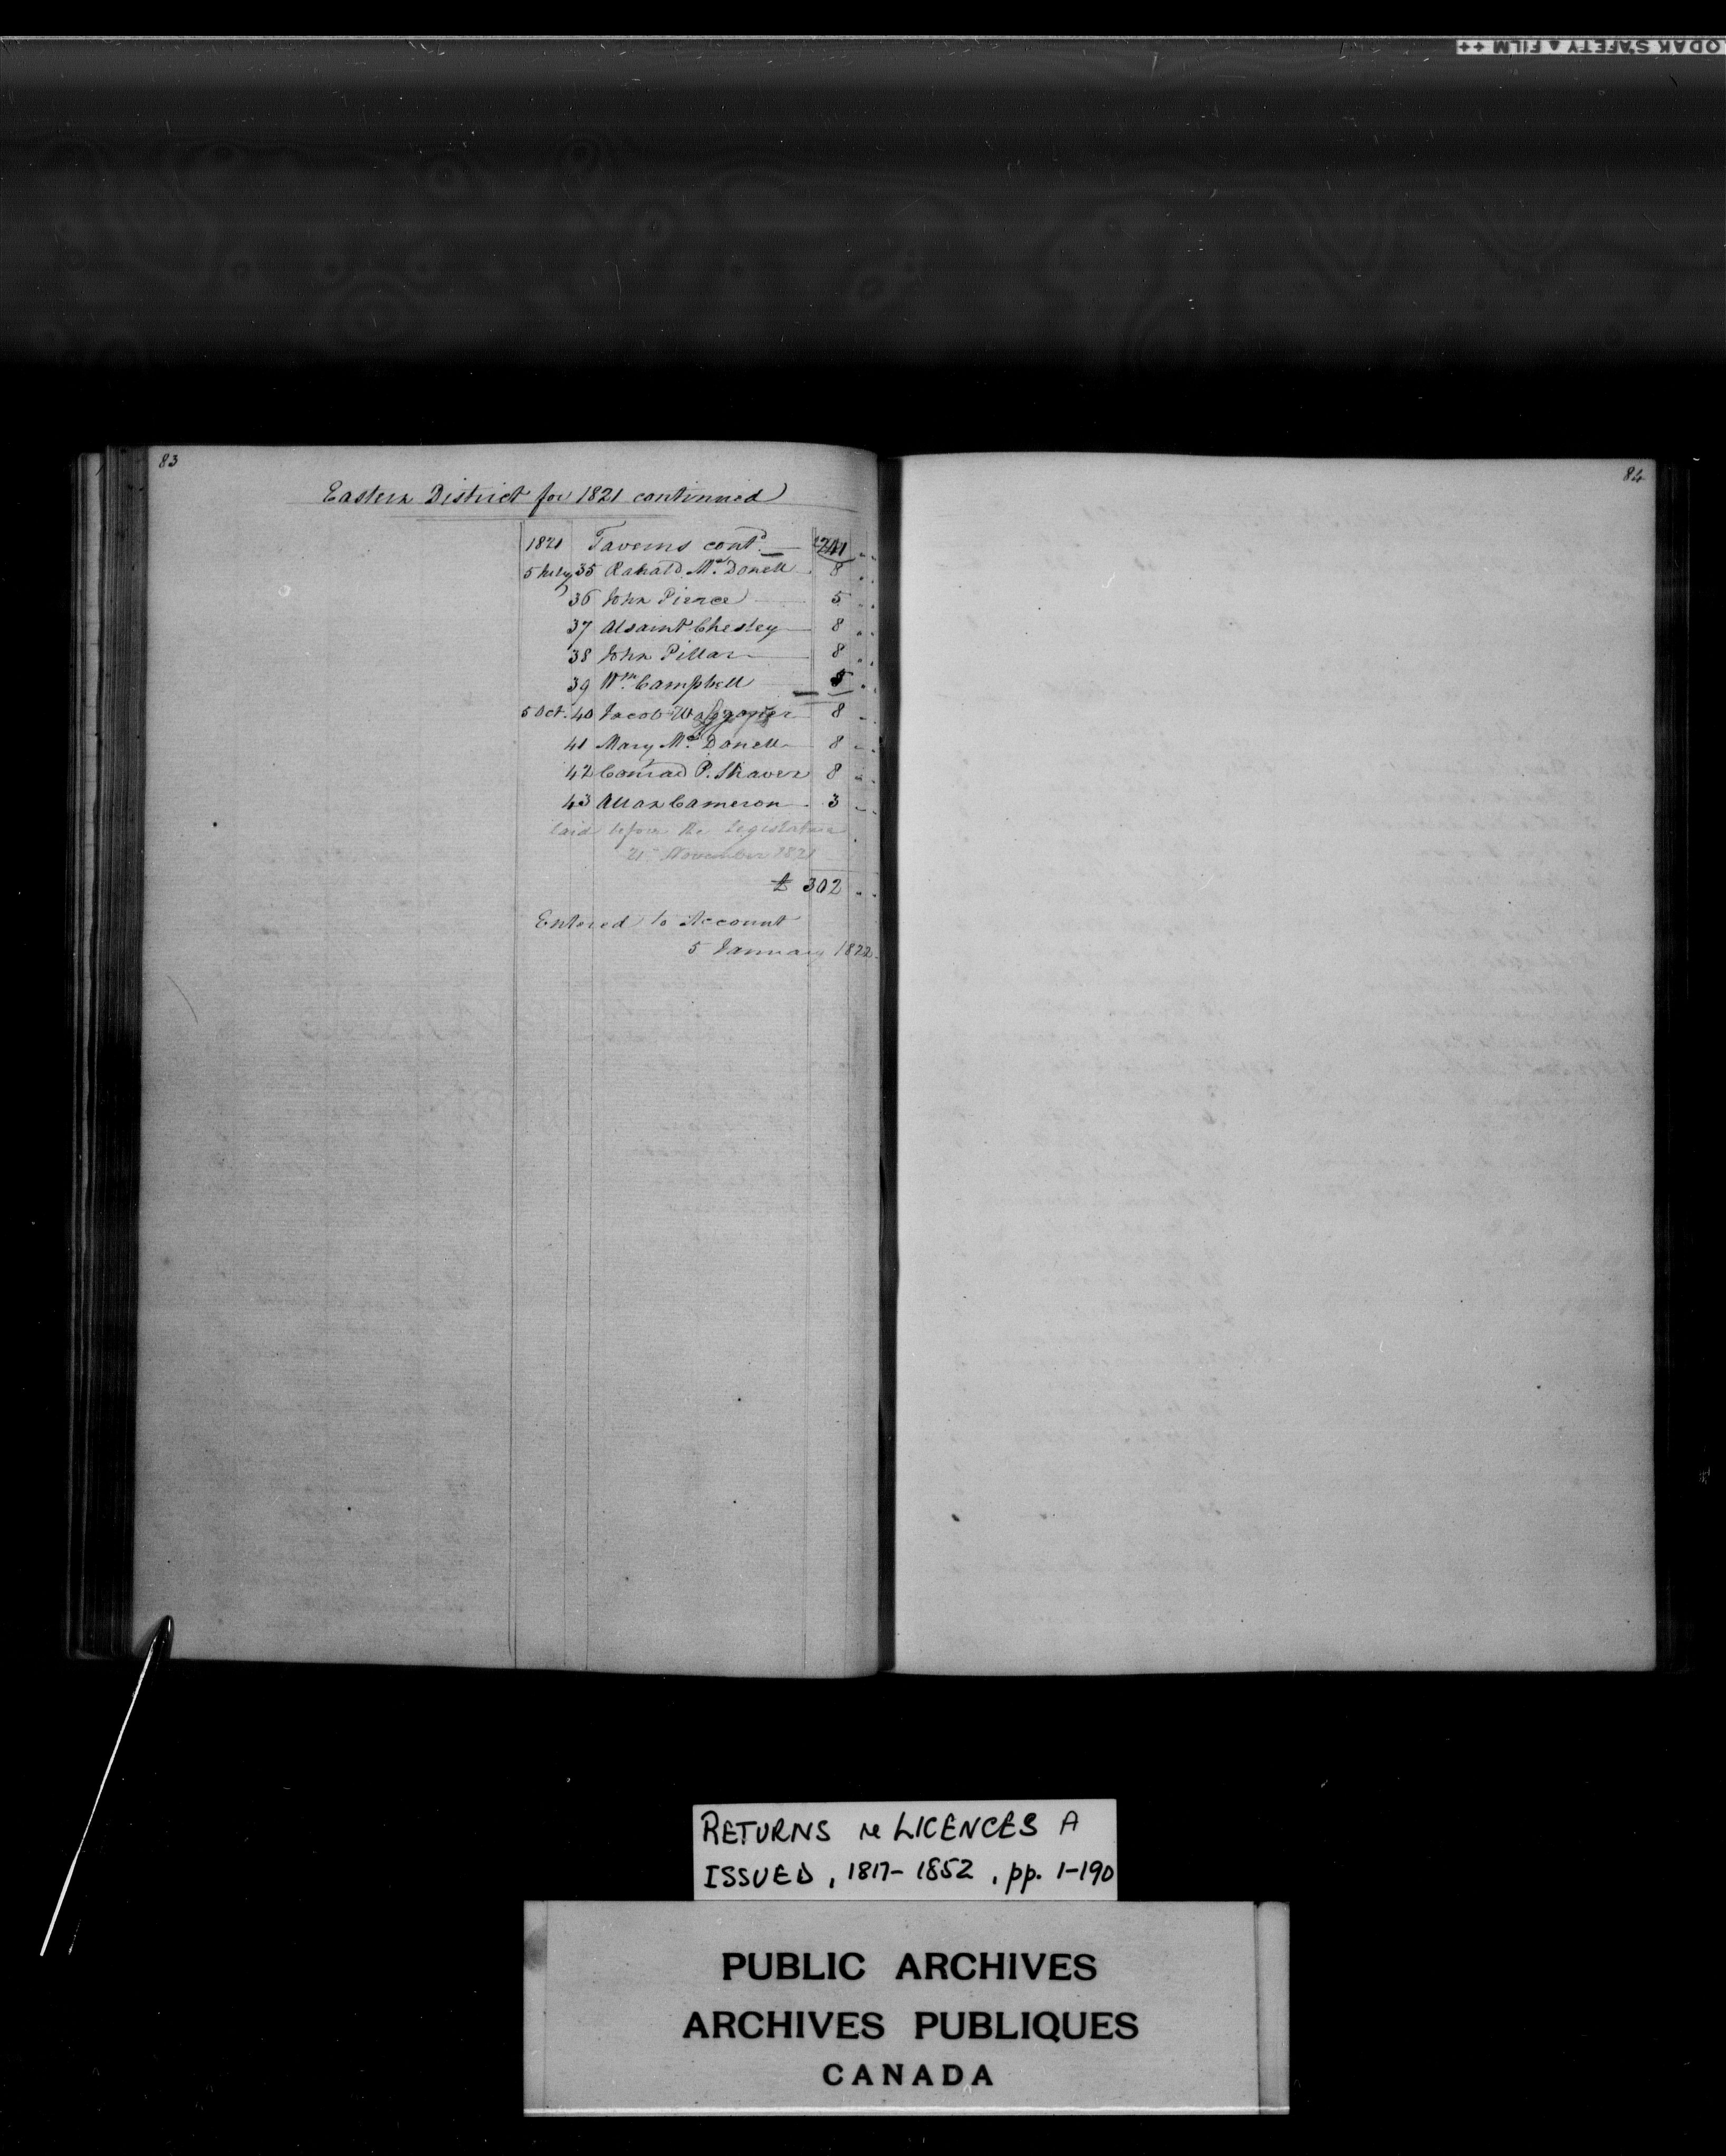 KODAK SAFETY ▲ FILM ++
83
84
Eastern District for 1821 continued
1821 Taverns contd. £241 " "
5 July 35 Ranald McDonell 8 " "
36 John Pierce 5 " "
37 Alsaint Chesley 8 " "
38 John Pillar 8 " "
39 Wm. Campbell 5 " "
5 Oct. 40 Jacob 8 " "
41 Mary McDonell 8 " "
42 Conrad P. Shaver 8 " "
43 Allan Cameron 3 " "
laid before the Legislature
21st November 1821
£ 302 " "
Entered to Account
5 January 1822.
RETURNS re LICENCES A
ISSUED, 1817-1852, pp. 1-190
PUBLIC ARCHIVES
ARCHIVES PUBLIQUES
CANADA